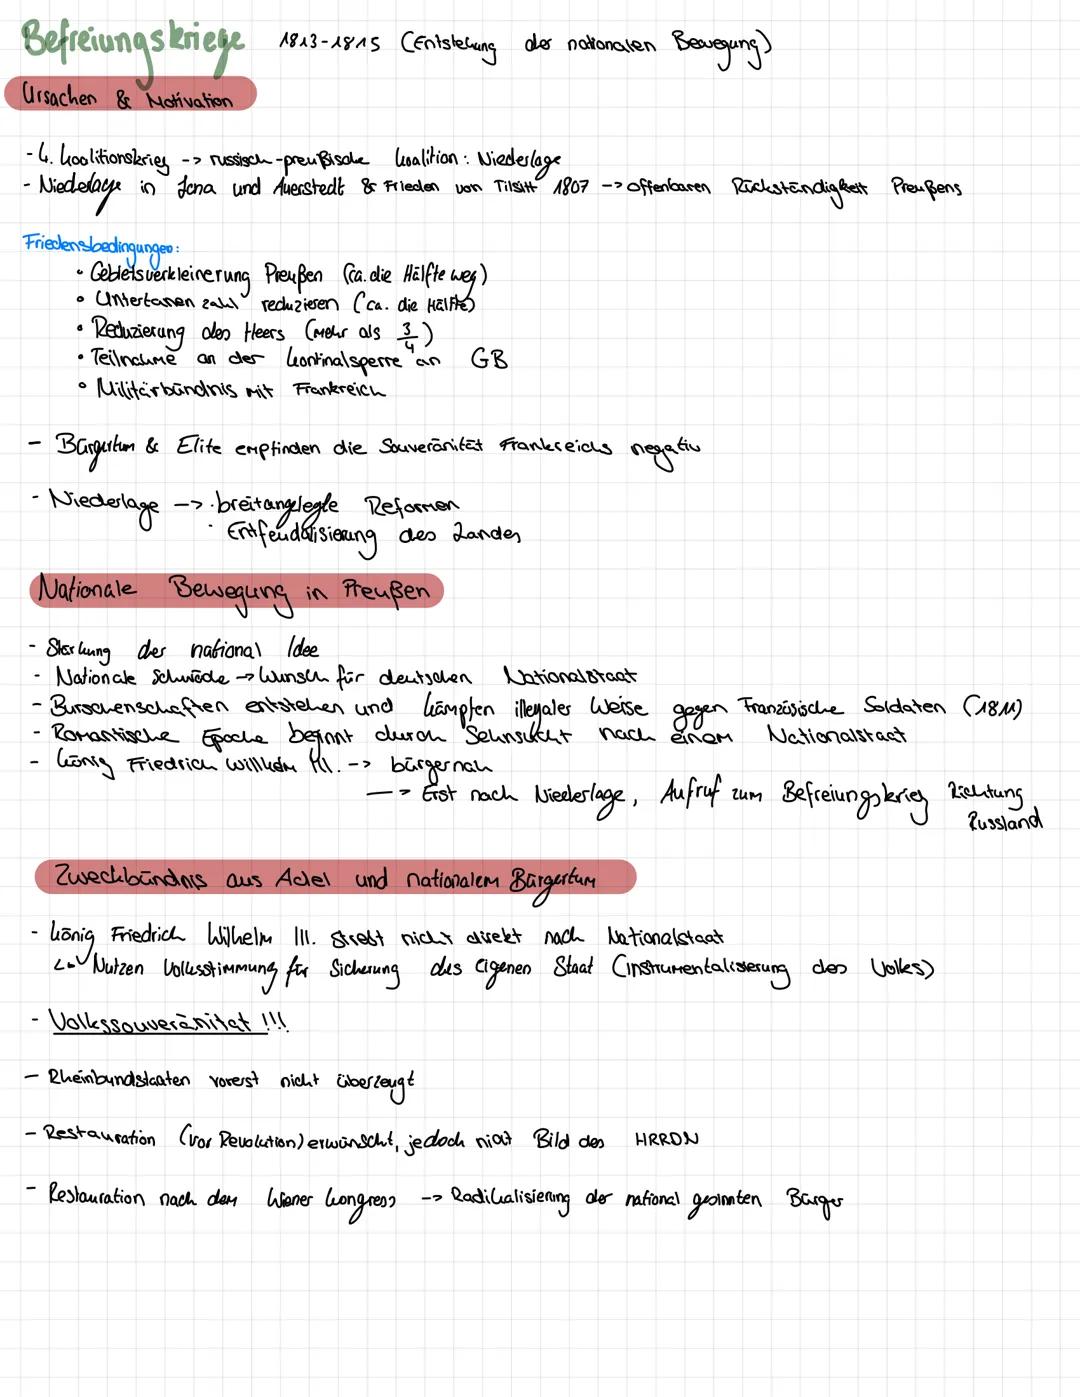 Befreiungskriege 1813-1815 (Entstehung der nationalen Bewegung)
Ursachen & Motivation
- 4. Koalitionskrieg -> russisch-preußische Koalition: Niederlage
- Niederlage in Jena und Auerstedt & Frieden von Tilsitt 1807 -> offenbaren Rückständigkeit Preußens
Friedensbedingungen:
• Gebietsverkleinerung Preußen (ca. die Hälfte weg)
• Untertanen zahl reduzieren (ca. die Hälfte)
• Reduzierung des Heers (mehr als 3/4)
• Teilnahme an der Kontinalsperre an GB
• Militärbündnis mit Frankreich
- Bürgertum & Elite empfinden die Souveränität Frankreichs negativ
- Niederlage -> · breitangelegte Reformen
· Entfeudalisierung des Landes
Nationale Bewegung in Preußen
- Stärkung der national Idee
- Nationale Schwäche -> Wunsch für deutschen Nationalstaat
- Burschenschaften entstehen und kämpfen illegaler Weise gegen Französische Soldaten (1811)
- Romantische Epoche beginnt durch Sehnsucht nach einem Nationalstaat
- König Friedrich Willhelm III. -> bürgernah
-> Erst nach Niederlage, Aufruf zum Befreiungskrieg Richtung
Russland
Zweckbündnis aus Adel und nationalem Bürgertum
- König Friedrich Wilhelm III. strebt nicht direkt nach Nationalstaat
Nutzen Volksstimmung für Sicherung des eigenen Staat (instrumentalisierung des Volkes)
- Volkssouveränität !!!
- Rheinbundstaaten vorerst nicht überzeugt
- Restauration (vor Revolution) erwünscht, jedoch nicht Bild des HRRDN
- Restauration nach dem Wiener Kongress -> Radikalisierung der national gesinnten Bürger